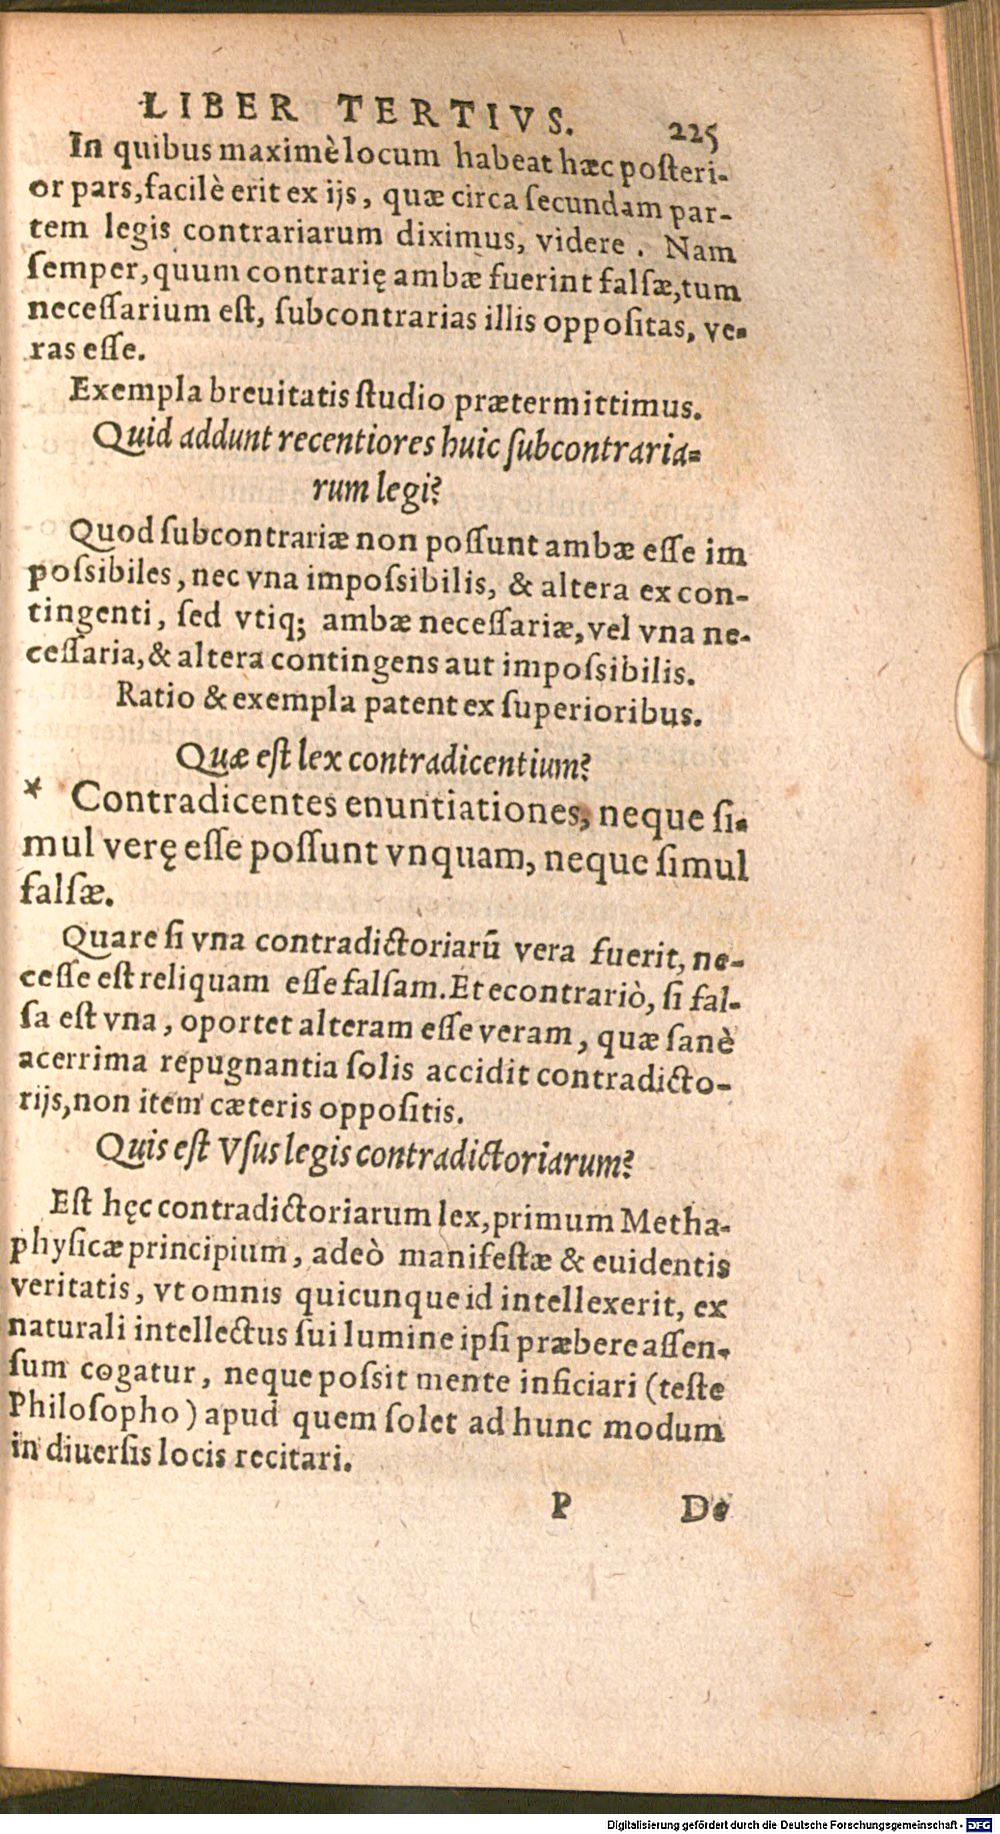 LIBER TERTIVS. 225
In quibus maximè locum habeat hæc posteri-
or pars, facilè erit ex ijs, quæ circa secundam par-
tem legis contrariarum diximus, videre. Nam
semper, quum contrarię ambæ fuerint falsæ, tum
necessarium est, subcontrarias illis oppositas, ve-
ras esse.
Exempla breuitatis studio prætermittimus.
Quid addunt recentiores huic subcontraria-
rum legi?
Quod subcontrariæ non possunt ambæ esse im
possibiles, nec vna impossibilis, & altera ex con-
tingenti, sed vtiq; ambæ necessariæ, vel vna ne-
cessaria, & altera contingens aut impossibilis.
Ratio & exempla patent ex superioribus.
Quæ est lex contradicentium?
* Contradicentes enuntiationes, neque si-
mul verę esse possunt vnquam, neque simul
falsæ.
Quare si vna contradictoriarū vera fuerit, ne-
cesse est reliquam esse falsam. Et econtrariò, si fal-
sa est vna, oportet alteram esse veram, quæ sanè
acerrima repugnantia solis accidit contradicto-
rijs, non item cæteris oppositis.
Quis est Vsus legis contradictoriarum?
Est hęc contradictoriarum lex, primum Metha-
physicæ principium, adeò manifestæ & euidentis
veritatis, vt omnis quicunque id intellexerit, ex
naturali intellectus sui lumine ipsi præbere assen-
sum cogatur, neque possit mente inficiari (teste
Philosopho) apud quem solet ad hunc modum
in diuersis locis recitari.
P De
Digitalisierung gefördert durch die Deutsche Forschungsgemeinschaft - DFG